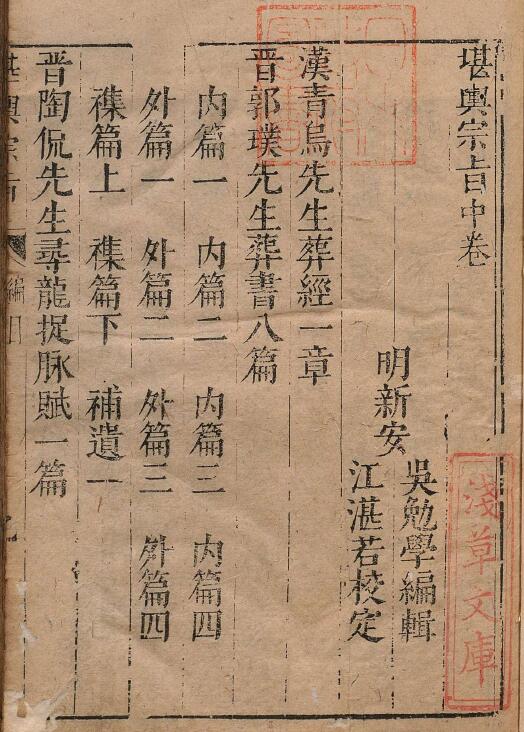 堪輿宗旨中卷
明新安
吳勉學編輯
江湛若校定
漢青烏先生葬經一章
晋郭璞先生葬書八篇
内篇一 内篇二 内篇三 内篇四
外篇一 外篇二 外篇三 外篇四
襍篇上 襍篇下 補遺一
晋陶侃先生尋龍捉脉賦一篇
堪輿宗旨 編目
淺草文庫